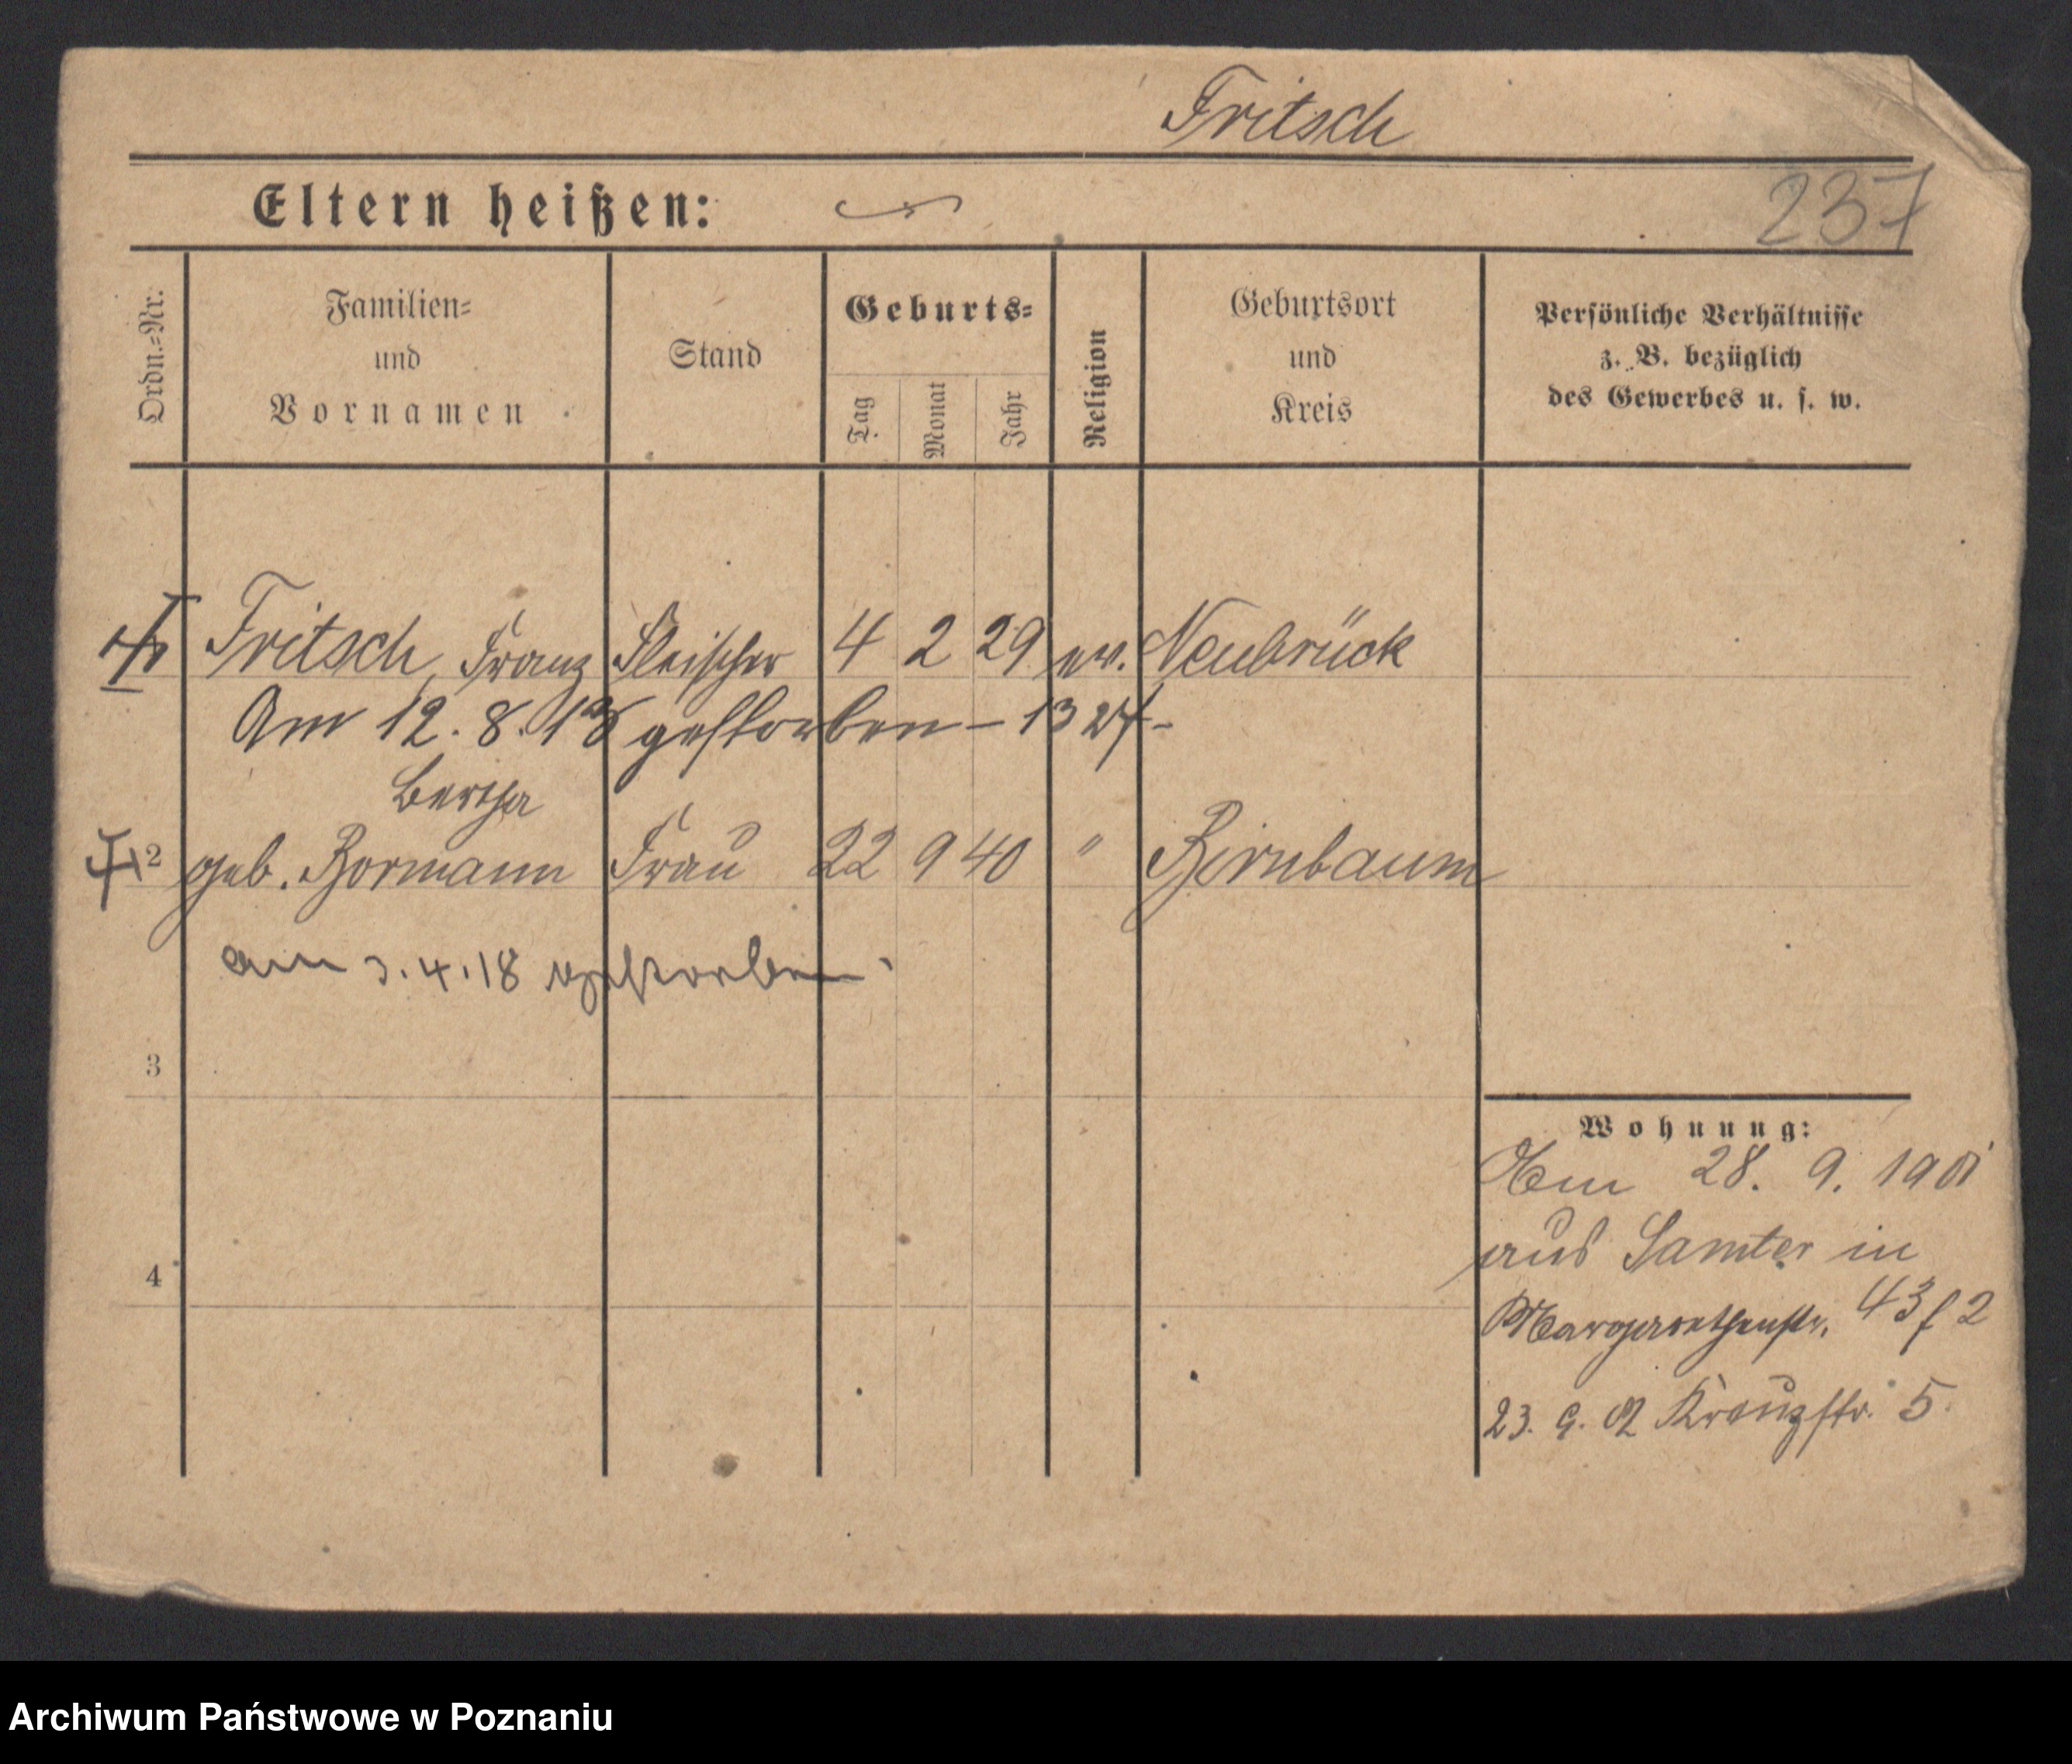 Fritsch
Eltern heißen:
237
Ordn.-Nr.
Familien-
und
Vornamen
Stand
Geburts-
Tag
Monat
Jahr
Religion
Geburtsort
und
Kreis
Persönliche Verhältnisse
z. B. bezüglich
des Gewerbes u. s. w.
Fritsch, Franz Fleischer 4 2 29 ev. Neubrück
Am 12. 8. gestorben -
Bertha
2 geb. Bormann Frau 22 9 40 " Birnbaum
am 3.4.18 gestorben.
3
Wohnung:
Am 28. 9. 1901
aus Samter in
4
Margarethenstr. 43 f 2
23. 9. 02 Kreuzstr. 5
Archiwum Państwowe w Poznaniu